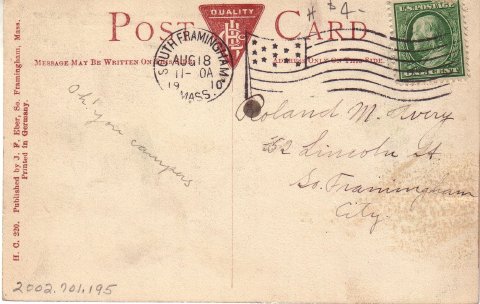 H $4-
POST CARD
QUALITY
MESSAGE MAY BE WRITTEN ON
ADDRESS ONLY ON THIS SIDE.
SOUTH FRAMINGHAM
AUG 18
11-0A
1910
MASS.
U.S. POSTAGE
ONE CENT
Oh! you campers
Roland M. Avery
52 Lincoln St.
So. Framingham
City.
H. C. 220. Published by J. F. Eber, So. Framingham, Mass.
Printed in Germany.
2002.701.195